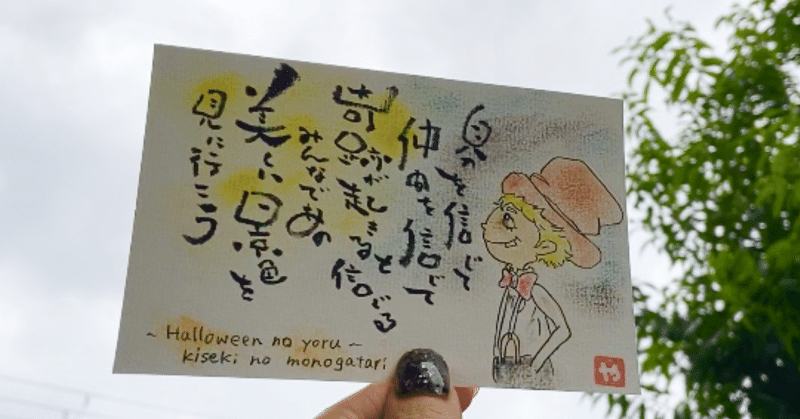 自分を信じて
仲間を信じて
奇跡が起きると信じる
みんなであの
美しい景色を
見に行こう
~ Halloween no yoru ~
kiseki no monogatari
や